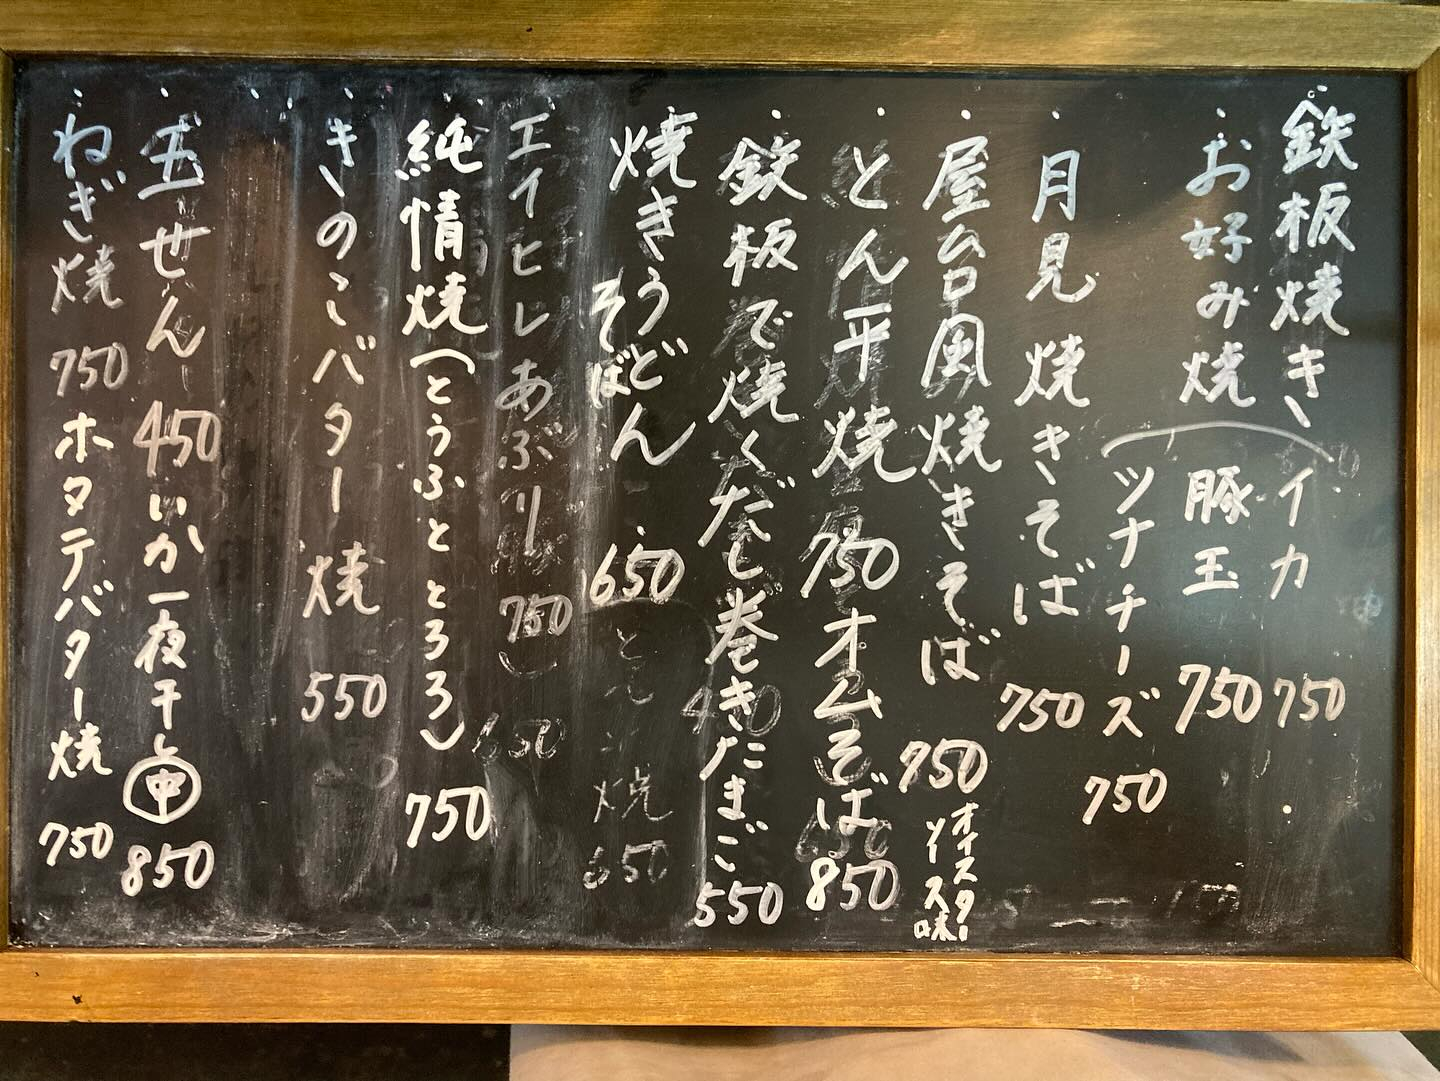 鉄板焼き
お好み焼
イカ 750
豚玉 750
ツナチーズ 750
月見焼きそば 750
屋台風焼きそば 750
オイスターソース味
とん平焼 750
オムそば 850
鉄板で焼くだし巻きたまご 550
焼きうどん 650
そば
エイヒレあぶり
純情焼(とうふととろろ) 750
きのこバター焼 550
玉せん 450
いか一夜干し 中 850
ねぎ焼 750
ホタテバター焼 750